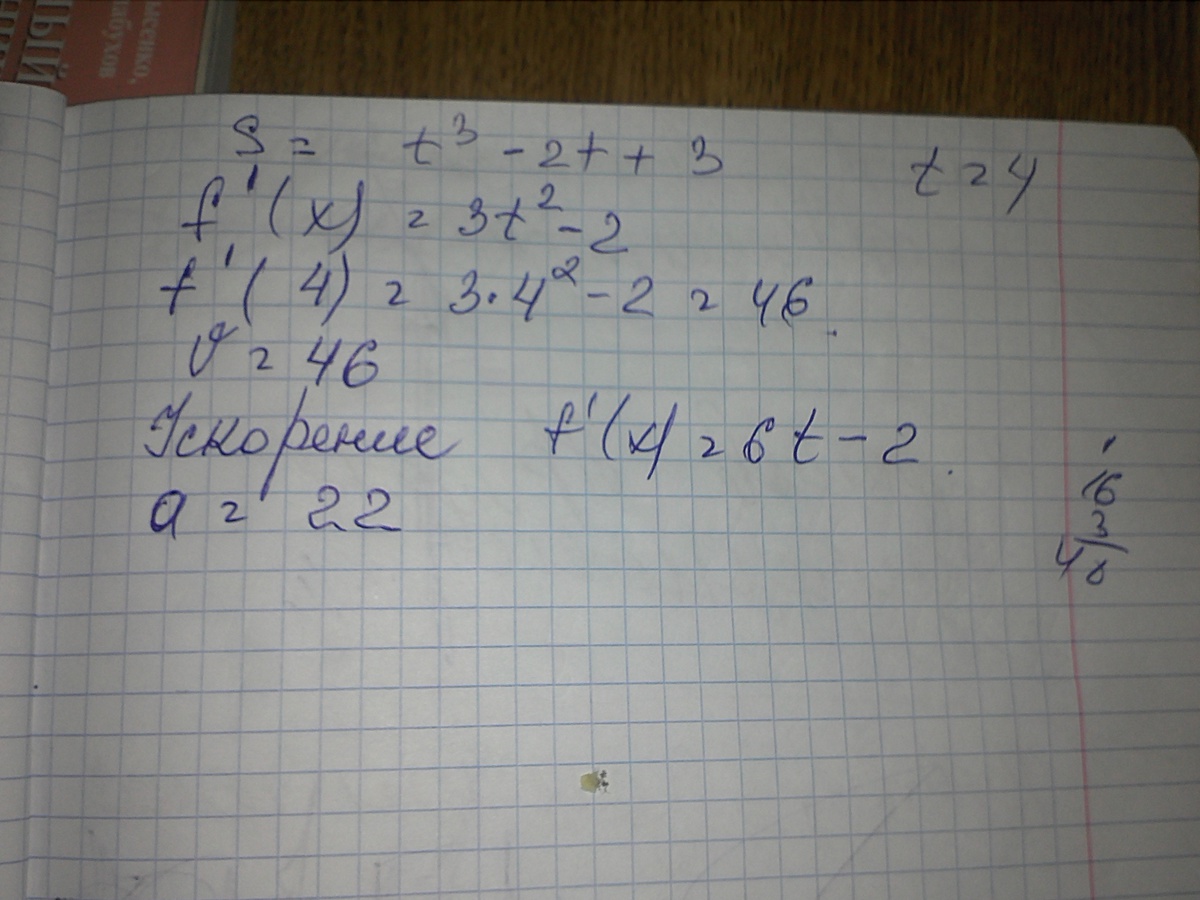 ЫЙ
ысенко,
ибухов
S = t³ - 2t + 3 t = 4
f'(x) = 3t² - 2
f'(4) = 3·4² - 2 = 46.
v = 46
Ускорение f'(x) = 6t - 2.
a = 22
16
3
48